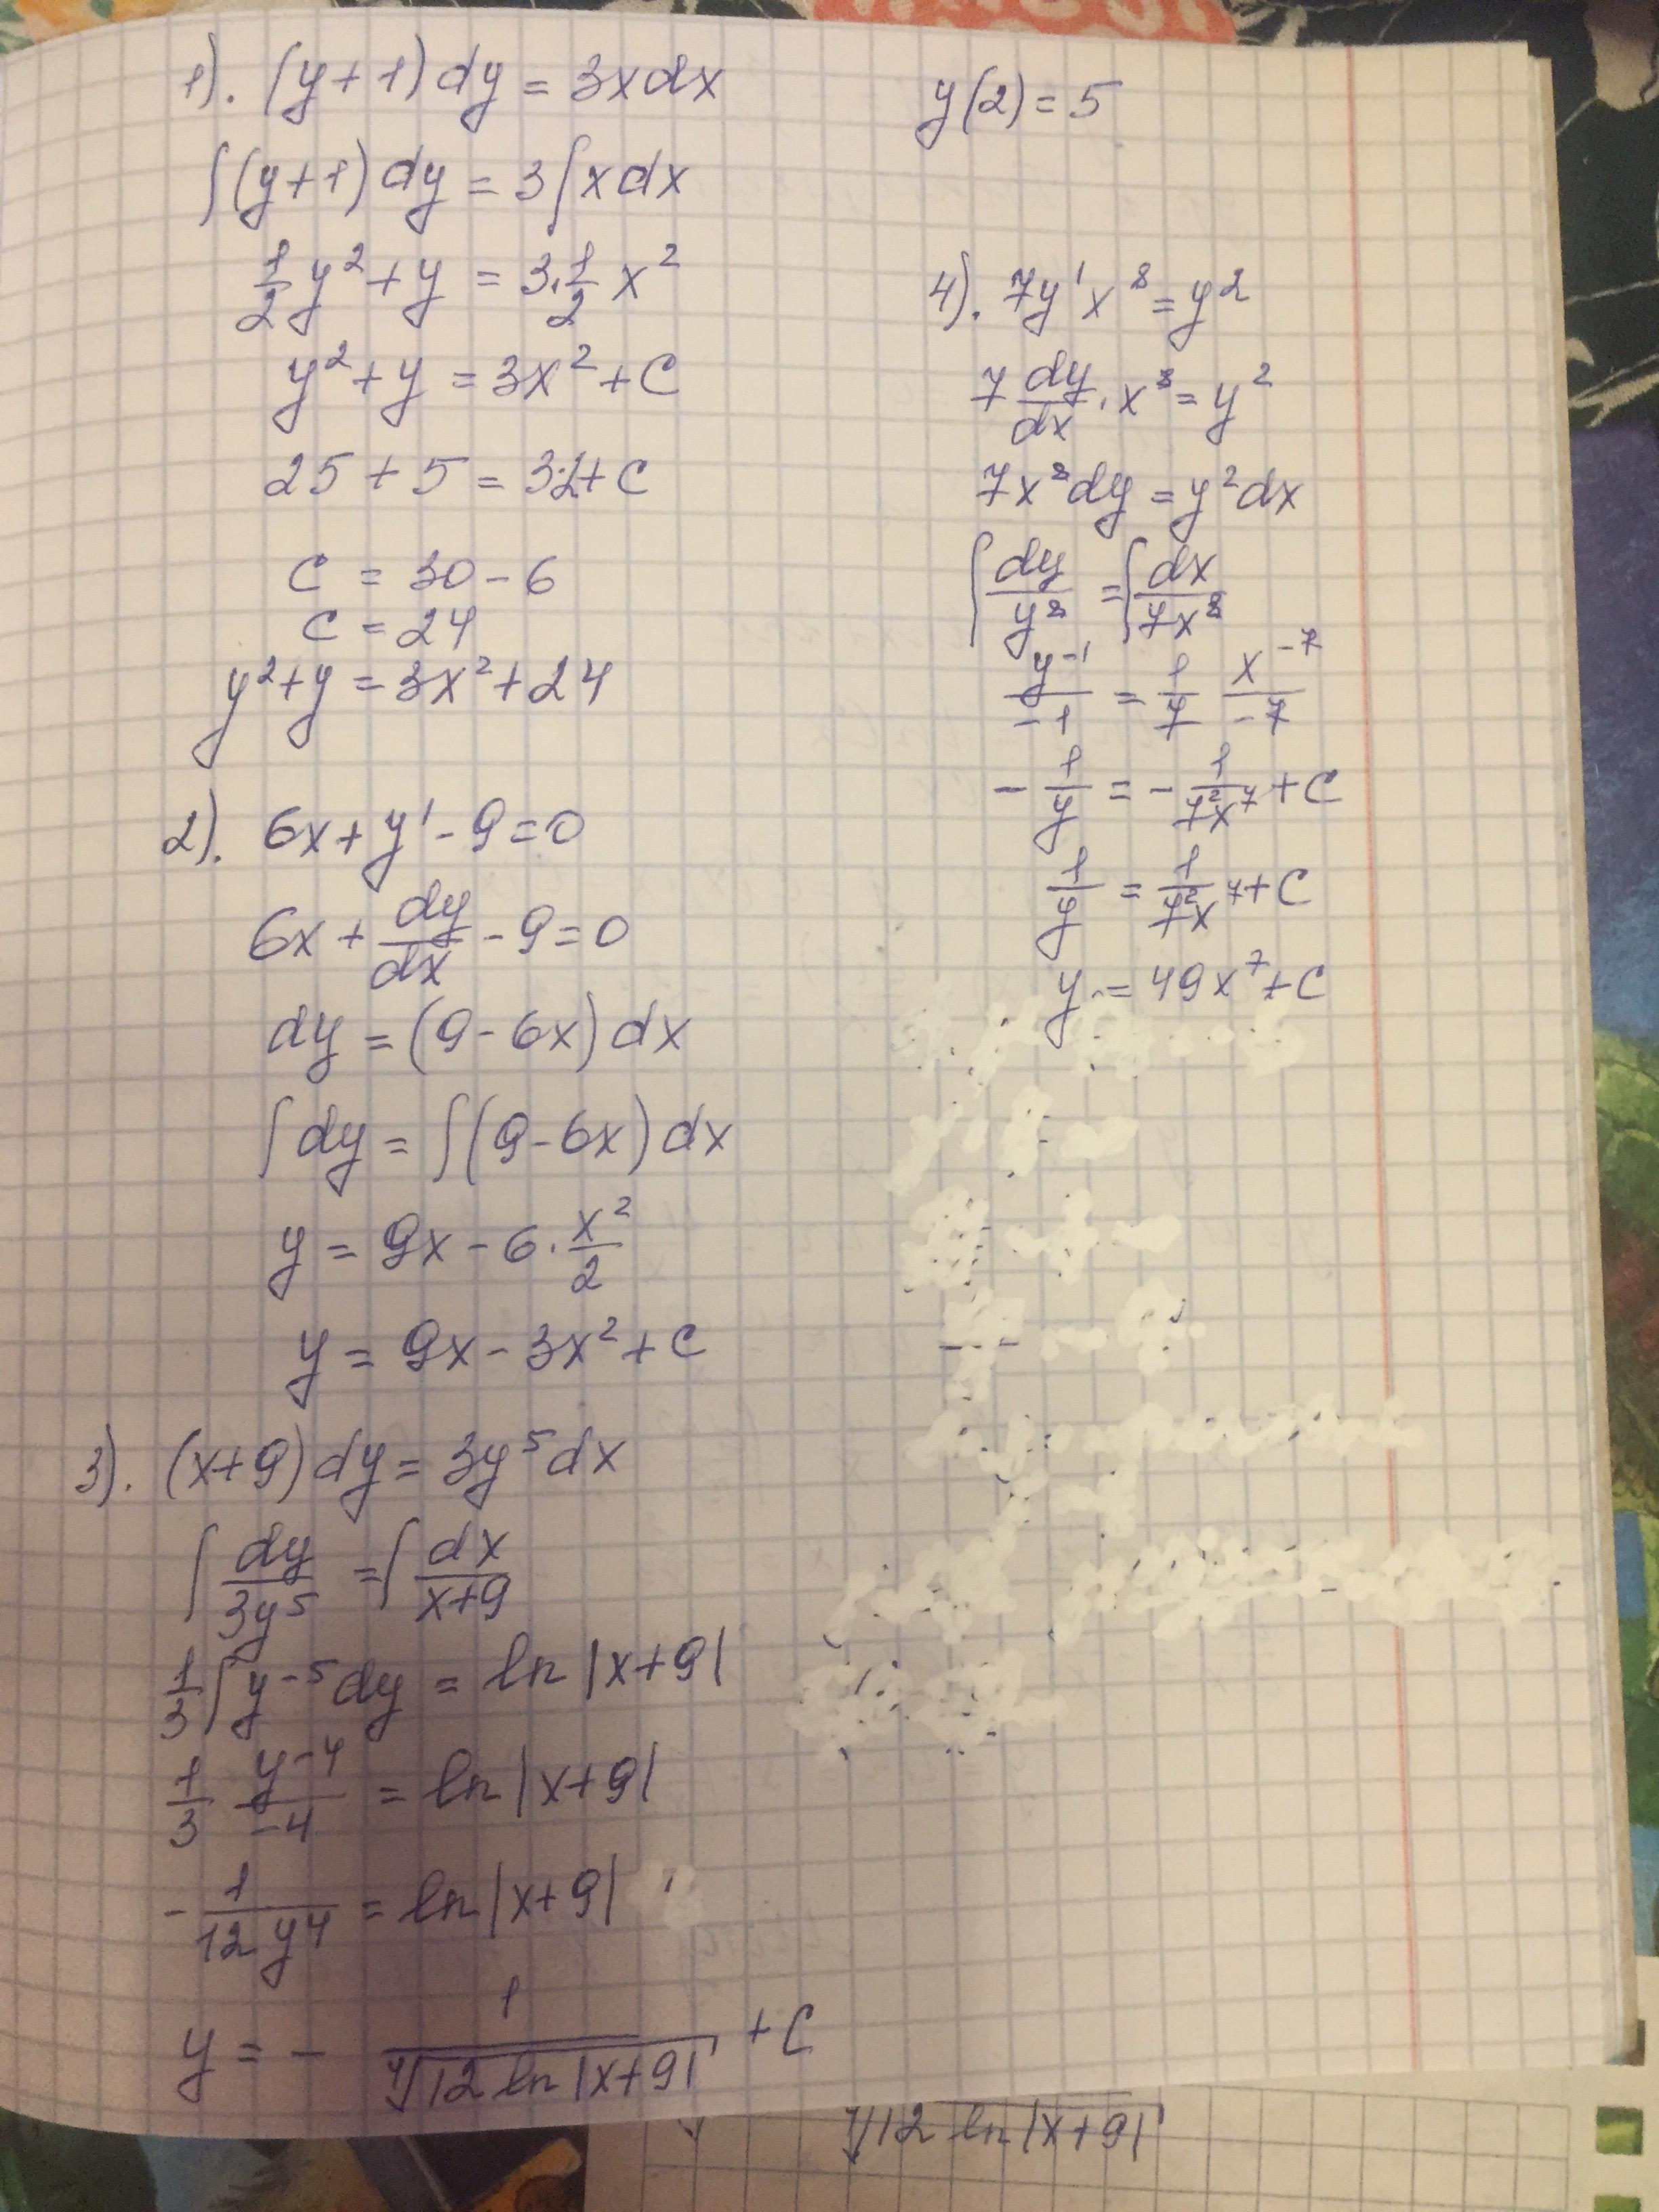 1). (y+1)dy = 3xdx
∫(y+1)dy = 3∫xdx
1/2 y² + y = 3·1/2 x²
y² + y = 3x² + C
25 + 5 = 3·2 + C
C = 30 - 6
C = 24
y² + y = 3x² + 24
2). 6x + y' - 9 = 0
6x + dy/dx - 9 = 0
dy = (9 - 6x)dx
∫dy = ∫(9 - 6x)dx
y = 9x - 6·x²/2
y = 9x - 3x² + C
3). (x+9)dy = 3y⁵dx
∫dy/3y⁵ = ∫dx/x+9
1/3 ∫y⁻⁵dy = ln|x+9|
1/3 y⁻⁴/-4 = ln|x+9|
-1/12y⁴ = ln|x+9|
y = - 1/⁴√12 ln|x+9| + C
y(2) = 5
4). 7y'x⁸ = y²
7 dy/dx · x⁸ = y²
7x⁸dy = y²dx
∫dy/y² = ∫dx/7x⁸
y⁻¹/-1 = 1/7 x⁻⁷/-7
-1/y = -1/7²x⁷ + C
1/y = 1/7²x⁷ + C
y = 49x⁷ + C
⁴√12 ln|x+9|